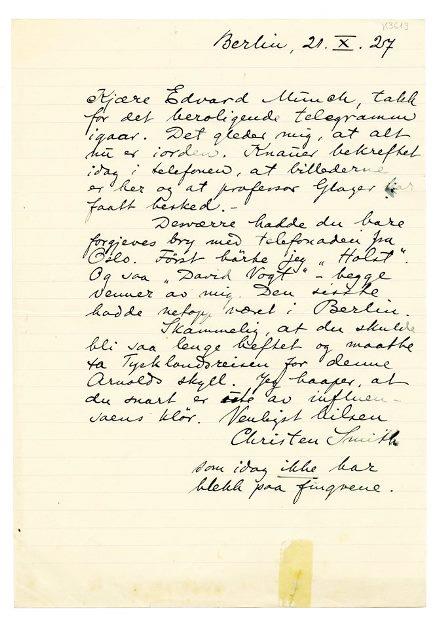 K3613
Berlin, 21. X. 27
Kjære Edvard Munch, takk
for det beroligende telegramm
igaar. Det gleder mig, at alt
nu er iorden. Knauer bekreftet
idag i telefonen, at billederne
er her og at professor Glaser har
faatt besked. –
Desværre hadde du bare
forgjeves bry med telefonaden fra
Oslo. Först hörte jeg "Holst".
Og saa "David Vogt" – begge
venner av mig. Den sisste
hadde netop været i Berlin.
Skammelig, at du skulde
bli saa lenge heftet og maatte
ta Tysklandsreisen for denne
Arnolds skyll – Jeg haaper, at
du snart er ute av influen-
saens klör. Venligst hilsen
Christen Smith
som idag ikke har
blekk paa fingrene.